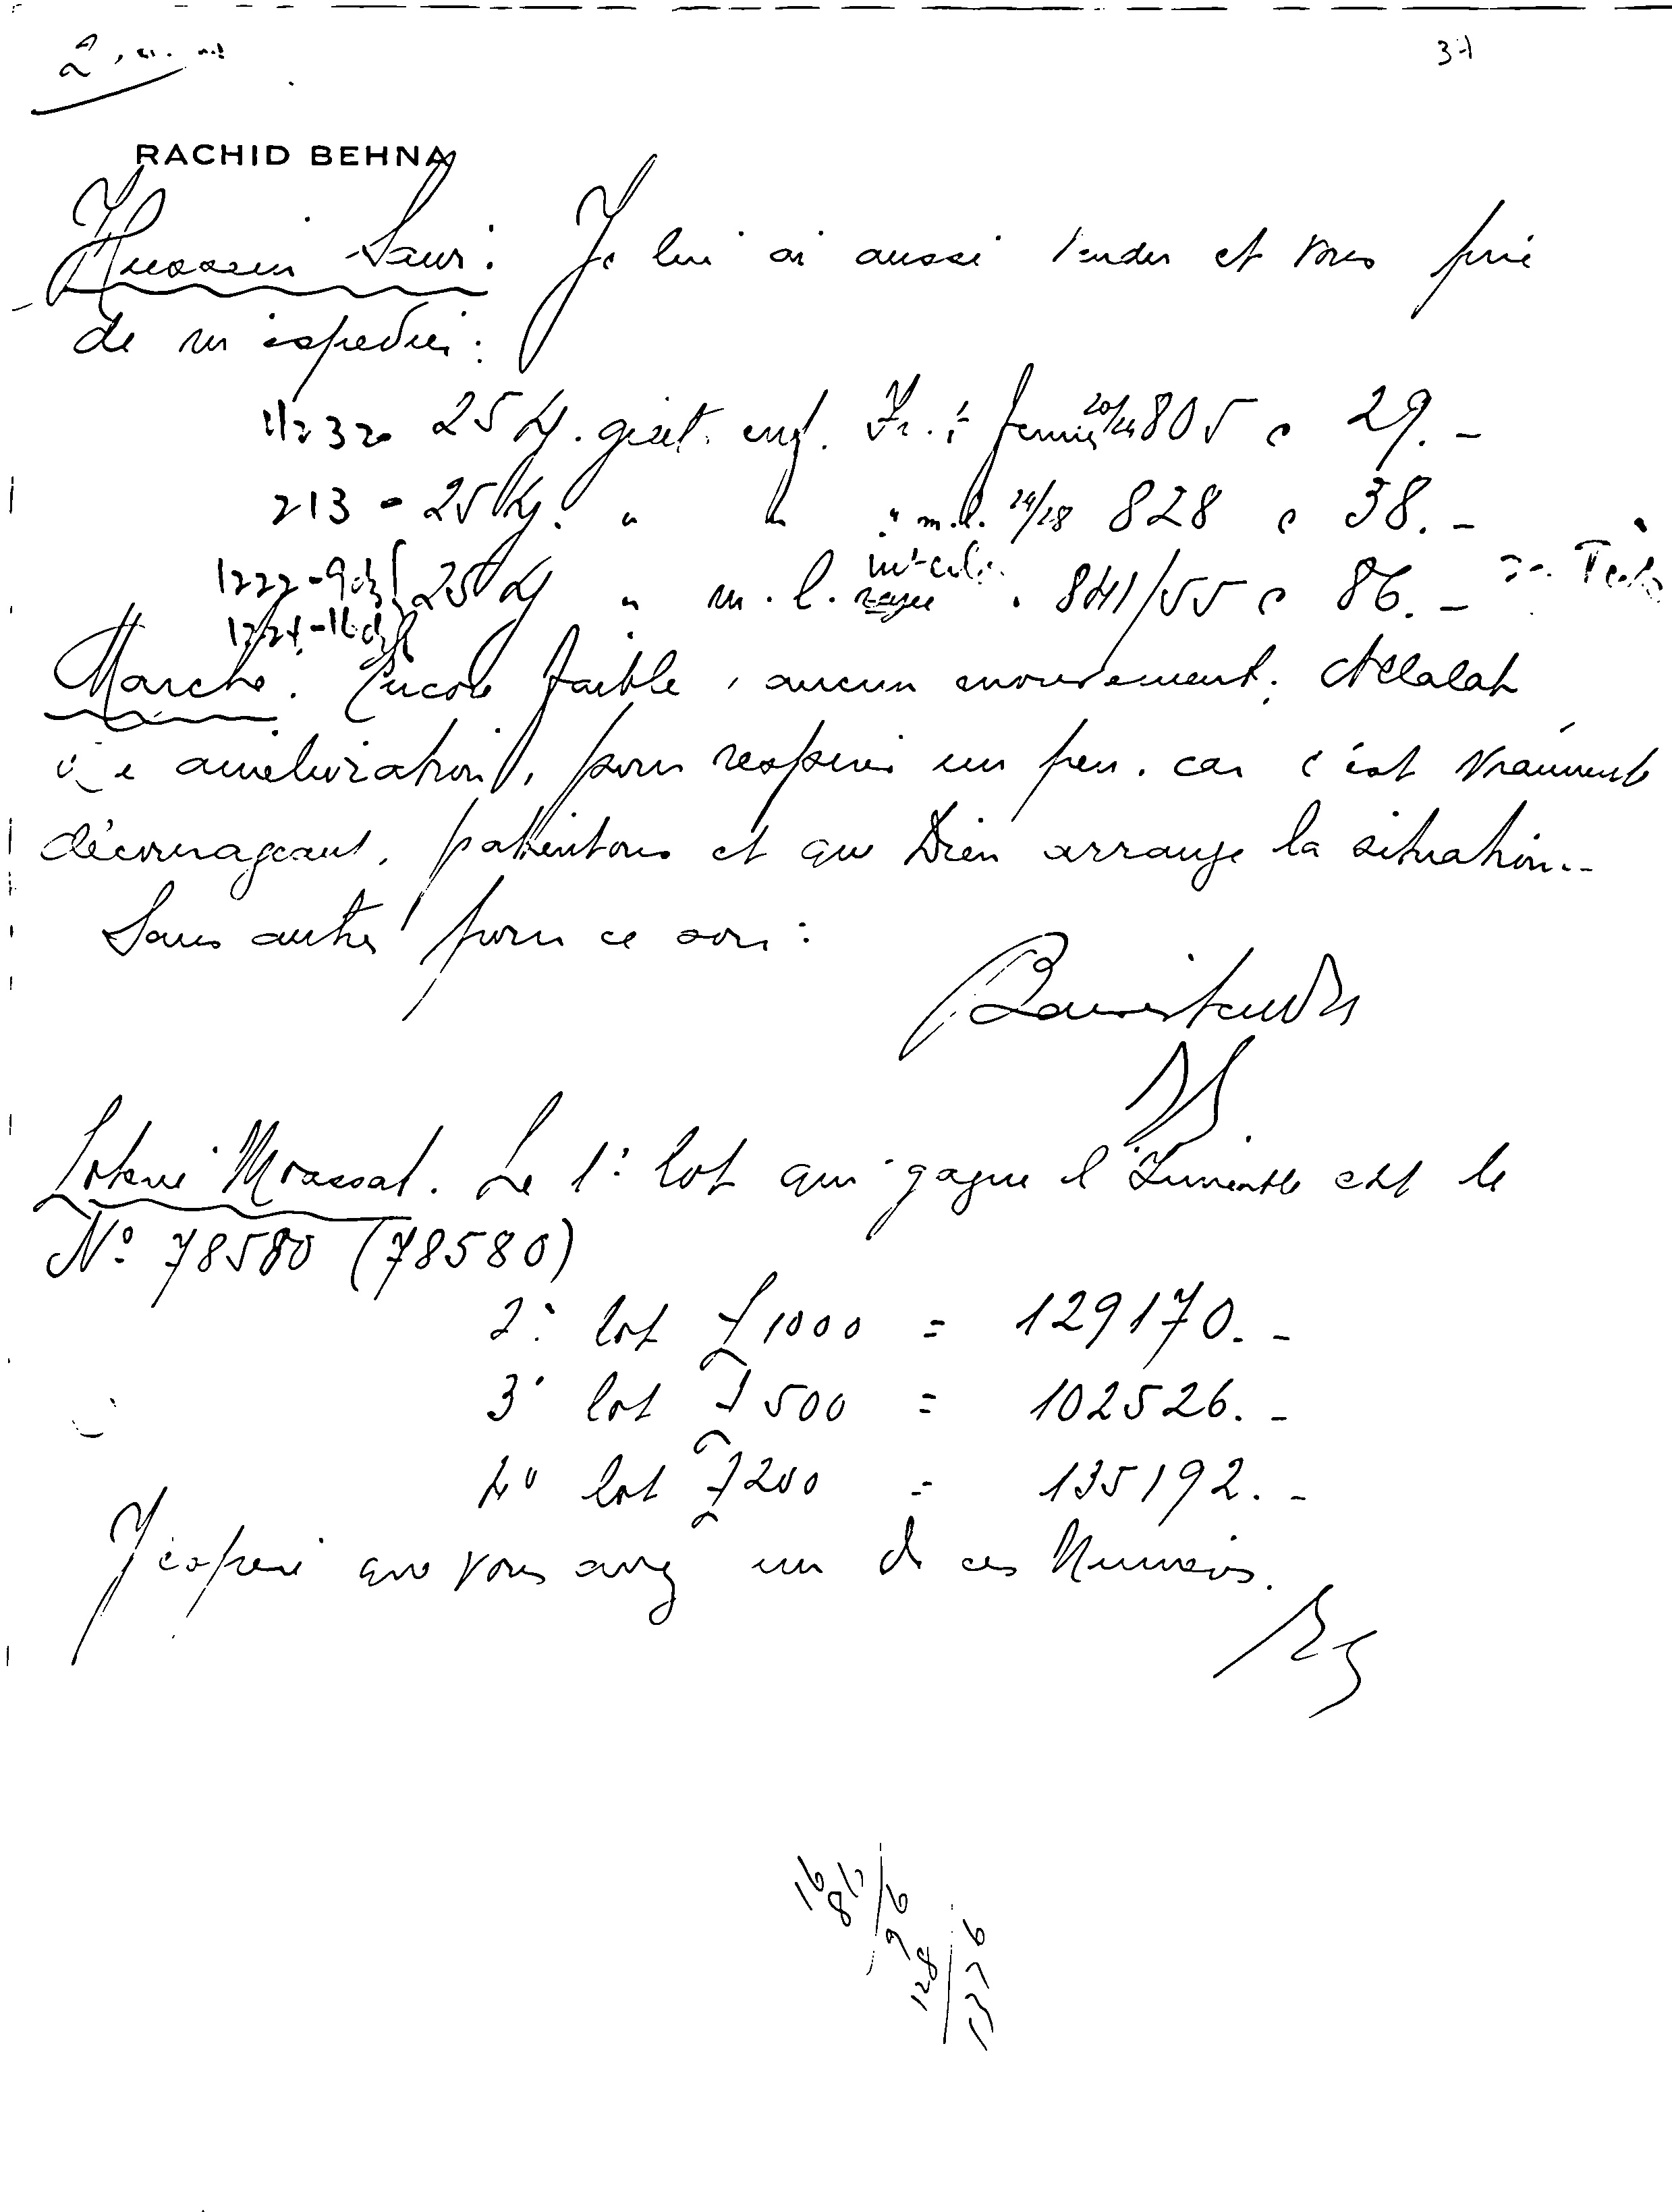 2
37
RACHID BEHNA
Hussein Sauri: Je lui ai aussi vendu et vous prie
de m'expedier:
25 Kg. gilet. enf. Fr. : fermés 20/24 805 c 29.-
213 - 25 Kg. " " " m.l. 24/28 828 c 38.-
1222-9dz 25 Kg " m.l. rayé . 841/55 c 86.-
1224-16dz
Marche. Encore faible, aucun mouvement. Allalah
amélioration, pour respirer un peu. car c'est vraiment
décourageant, patientons et que Dieu arrange la situation..
Sans autre pour ce soir:
Loterie Moassat. Le 1° lot qui gagne l'Immeuble est le
N° 78580 (78580)
2° lot £ 1000 = 129170.-
3° lot £ 500 = 102526.-
4° lot £ 200 = 135192.-
J'espere que vous avez un de ces Numeros.
16
96
128
1376